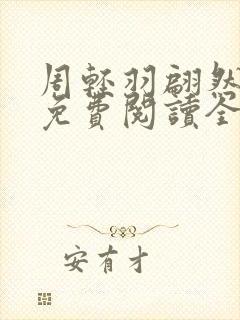 周輕羽翩然
免費閱讀全
安有才